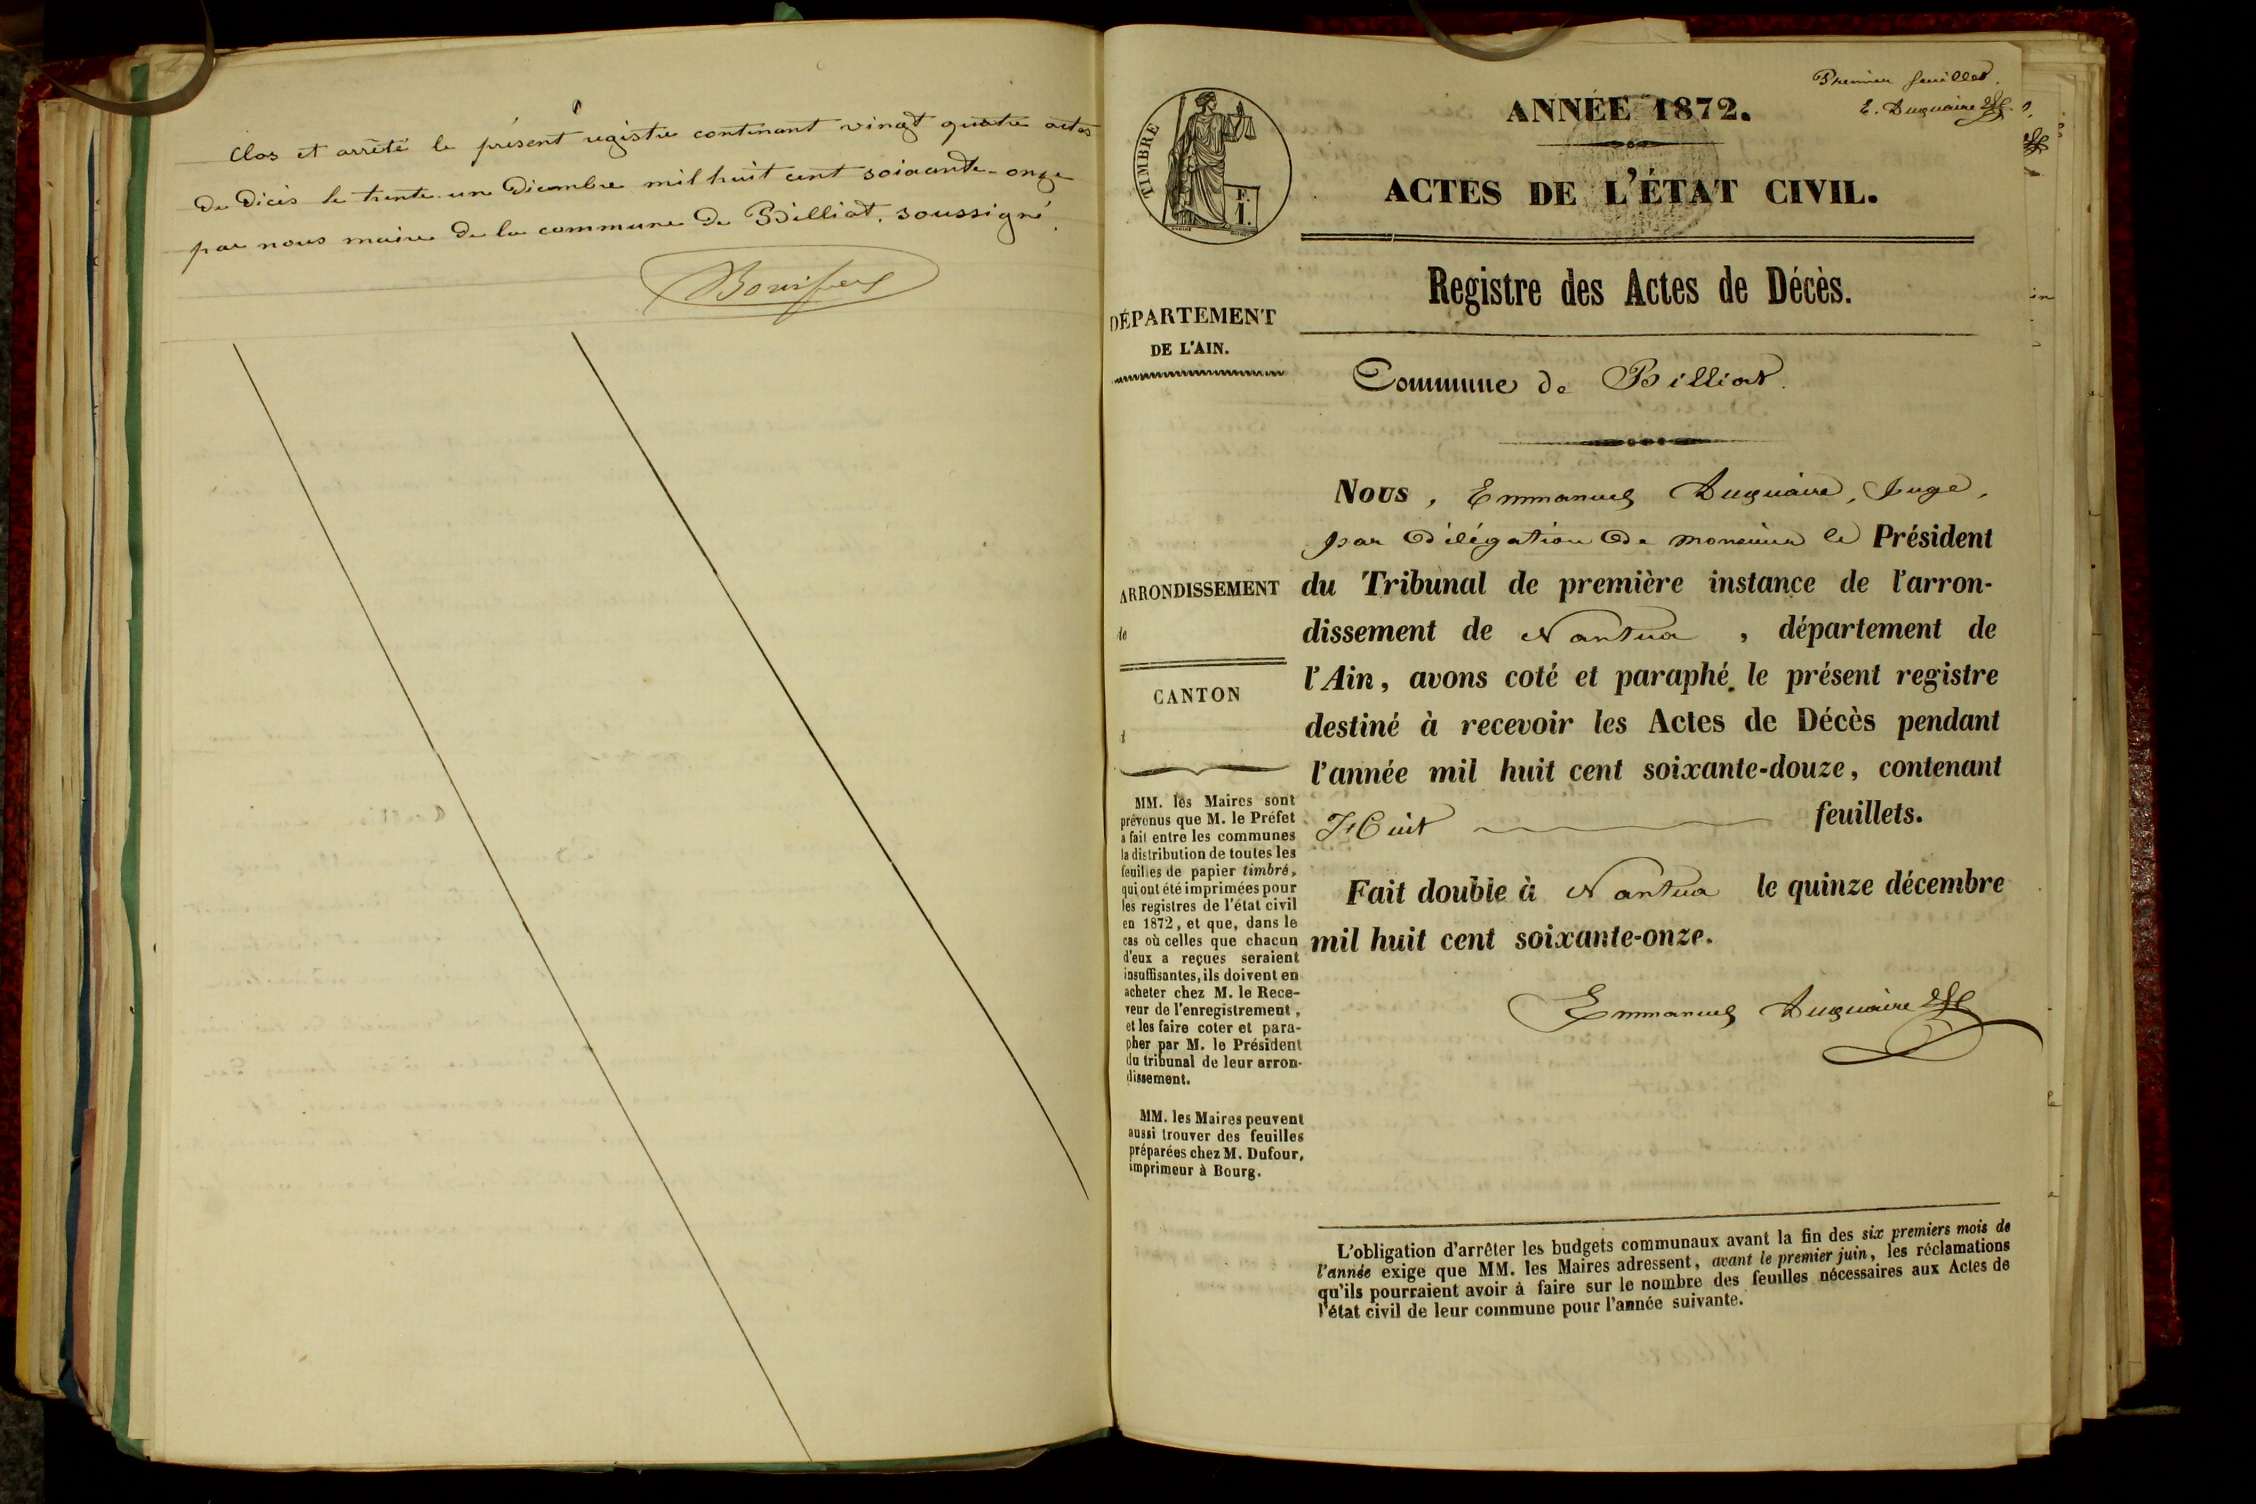 Clos et arrêté le présent registre contenant vingt quatre actes
de décès le trente un Décembre mil huit cent soixante-onze
par nous maire de la commune de Billiat, soussigné.
Premier feuillet.
E. Duquaire
TIMBRE
F.
1.
ANNÉE 1872.
ACTES DE L'ÉTAT CIVIL.
Registre des Actes de Décès.
DÉPARTEMENT
DE L'AIN.
Commune de Billiat.
Nous, Emmanuel Duquaire, Juge,
par délégation de monsieur le Président
ARRONDISSEMENT
de
du Tribunal de première instance de l'arron-
dissement de Nantua, département de
l'Ain, avons coté et paraphé le présent registre
destiné à recevoir les Actes de Décès pendant
l'année mil huit cent soixante-douze, contenant
Huit feuillets.
Fait double à Nantua le quinze décembre
mil huit cent soixante-onze.
Emmanuel Duquaire
CANTON
MM. les Maires sont
prévenus que M. le Préfet
a fait entre les communes
la distribution de toutes les
feuilles de papier timbré,
qui ont été imprimées pour
les registres de l'état civil
en 1872, et que, dans le
cas où celles que chacun
d'eux a reçues seraient
insuffisantes, ils doivent en
acheter chez M. le Rece-
veur de l'enregistrement,
et les faire coter et para-
pher par M. le Président
du tribunal de leur arron-
dissement.
MM. les Maires peuvent
aussi trouver des feuilles
préparées chez M. Dufour,
imprimeur à Bourg.
L'obligation d'arrêter les budgets communaux avant la fin des six premiers mois de
l'année exige que MM. les Maires adressent, avant le premier juin, les réclamations
qu'ils pourraient avoir à faire sur le nombre des feuilles nécessaires aux Actes de
l'état civil de leur commune pour l'année suivante.